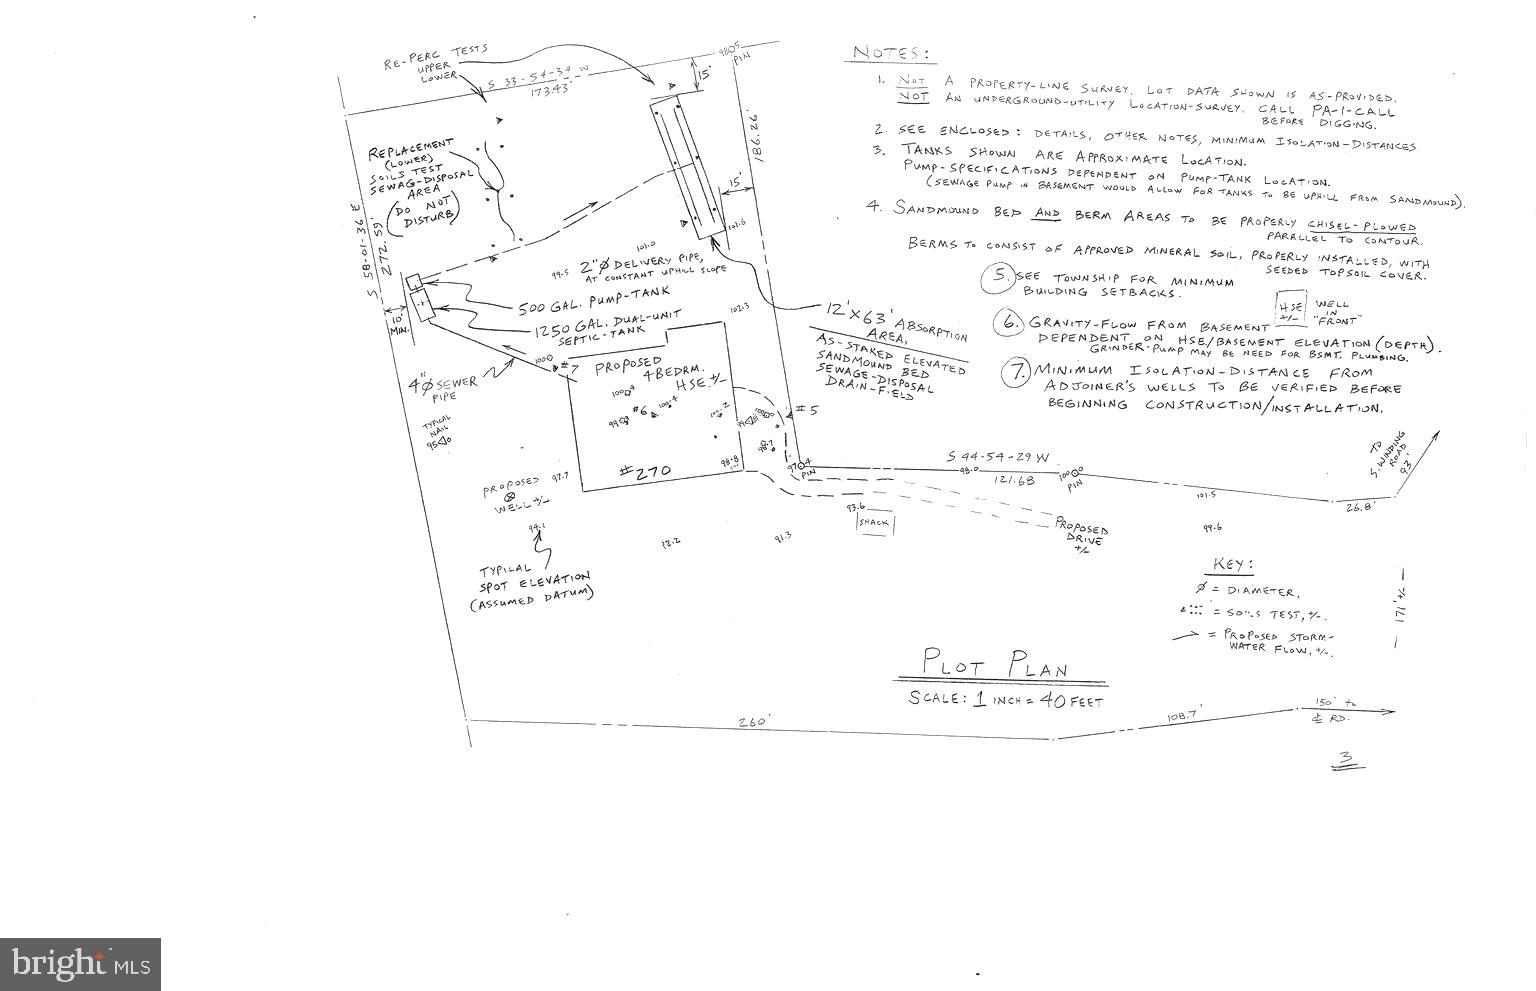 RE-PERC TESTS
UPPER
LOWER
S 33-54-34 W
173.43'
9805
PIN
15'
186.92'
15'
REPLACEMENT
(LOWER)
SOILS TEST
SEWAG-DISPOSAL
AREA
(DO NOT
DISTURB)
S 58-01-36 E
272.59'
10'
MIN.
101.6
101.0
99.5
2"Ø DELIVERY PIPE,
AT CONSTANT UPHILL SLOPE
500 GAL. PUMP-TANK
1250 GAL. DUAL-UNIT
SEPTIC-TANK
102.3
12'X63' ABSORPTION
AREA,
AS-STAKED ELEVATED
SANDMOUND BED
SEWAGE-DISPOSAL
DRAIN-FIELD
4"Ø SEWER
PIPE
#7
PROPOSED
4 BEDRM.
HSE.+/-
#6
100.4
#5
TYPICAL
NAIL
98.8
98.7
#270
PROPOSED
WELL +/-
97.7
94.1
TYPICAL
SPOT ELEVATION
(ASSUMED DATUM)
91.3
93.6
SHACK
PIN
S 44-54-29 W
98.0
121.68
PIN
101.5
99.6
26.8'
TO
S. WINDING
ROAD
93'
PROPOSED
DRIVE
+/-
NOTES:
1. NOT A PROPERTY-LINE SURVEY. LOT DATA SHOWN IS AS-PROVIDED.
NOT AN UNDERGROUND-UTILITY LOCATION-SURVEY. CALL PA-1-CALL
BEFORE DIGGING.
2. SEE ENCLOSED: DETAILS, OTHER NOTES, MINIMUM ISOLATION-DISTANCES.
3. TANKS SHOWN ARE APPROXIMATE LOCATION.
PUMP-SPECIFICATIONS DEPENDENT ON PUMP-TANK LOCATION.
(SEWAGE PUMP IN BASEMENT WOULD ALLOW FOR TANKS TO BE UPHILL FROM SANDMOUND).
4. SANDMOUND BED AND BERM AREAS TO BE PROPERLY CHISEL-PLOWED
PARALLEL TO CONTOUR.
BERMS TO CONSIST OF APPROVED MINERAL SOIL, PROPERLY INSTALLED, WITH
SEEDED TOPSOIL COVER.
5. SEE TOWNSHIP FOR MINIMUM
BUILDING SETBACKS.
HSE
+/-
WELL
IN
"FRONT"
6. GRAVITY-FLOW FROM BASEMENT
DEPENDENT ON HSE/BASEMENT ELEVATION (DEPTH).
GRINDER-PUMP MAY BE NEED FOR BSMT. PLUMBING.
7. MINIMUM ISOLATION-DISTANCE FROM
ADJOINER'S WELLS TO BE VERIFIED BEFORE
BEGINNING CONSTRUCTION/INSTALLATION.
KEY:
Ø = DIAMETER.
= SOILS TEST, +/-.
= PROPOSED STORM-
WATER FLOW, +/-.
171'+/-
PLOT PLAN
SCALE: 1 INCH = 40 FEET
260'
108.7'
150' to
℄ RD.
3
bright MLS